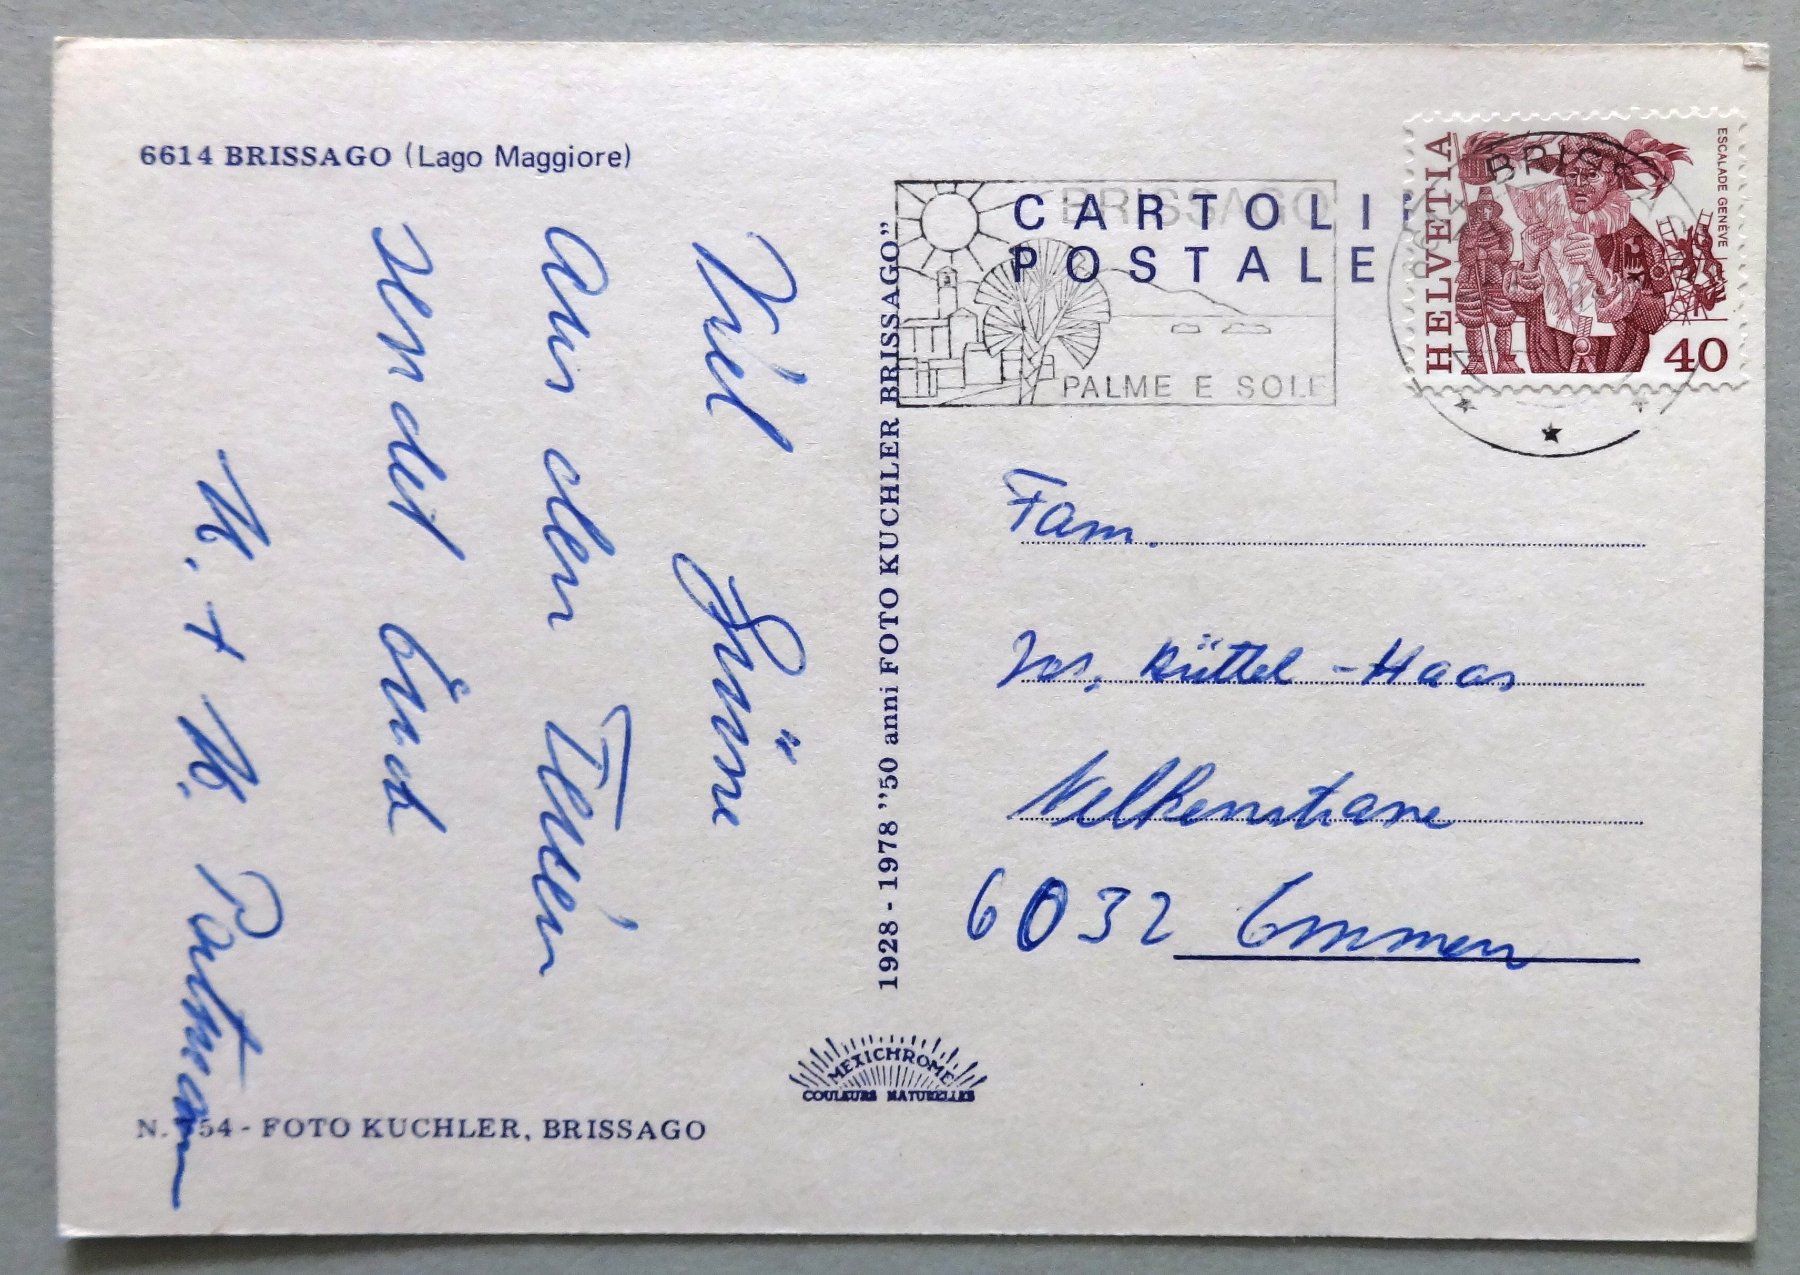 6614 BRISSAGO (Lago Maggiore)
Viel Grüsse
aus dem Tessin
sendet Euch
M. + M. Portmann
N. 54 - FOTO KUCHLER, BRISSAGO
1928 - 1978 "50 anni FOTO KUCHLER BRISSAGO"
MEXICHROME
COULEURS NATURELLES
CARTOLI
POSTALE
BRISSAGO
PALME E SOLE
BRISS
HELVETIA
ESCALADE GENÈVE
40
Fam.
Jos. Küttel-Haas
Nelkenstrasse
6032 Emmen